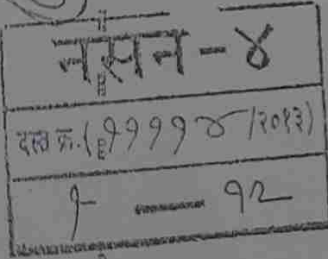 नसन - ४
दस्त क्र. (११११४ /२०१३)
१ - १२